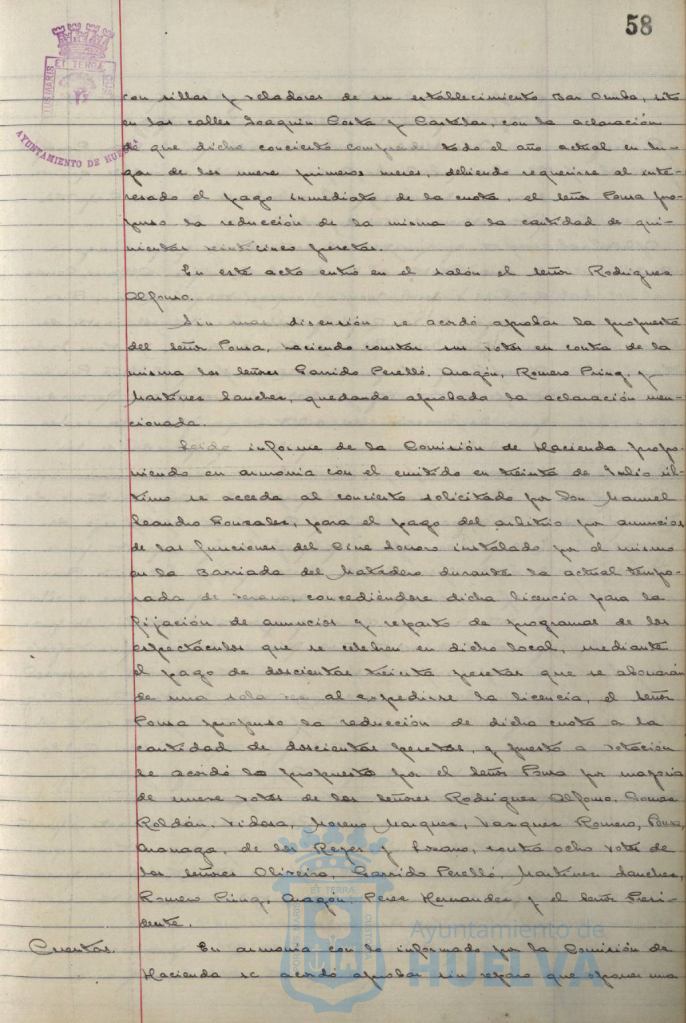 58
PORTUS MARIS
ET TERRÆ
AYUNTAMIENTO DE HUELVA
con sillas y veladores de su establecimiento Bar Onuba, sito
en las calles Joaquin Costa y Castelar, con la aclaración
de que dicho concierto comprende todo el año actual en lu-
gar de los nueve primeros meses, debiendo requerirse al inte-
resado el pago inmediato de la cuota, el señor Pousa pro-
puso la reducción de la misma a la cantidad de qui-
nientas veinticinco pesetas.
En este acto entró en el salón el señor Rodriguez
Alfonso.
Sin mas discusión se acordó aprobar la propuesta
del señor Pousa, haciendo constar sus votos en contra de la
misma los señores Garrido Perelló, Aragón, Romero Pinq, y
Martinez Sanchez, quedando aprobada la aclaración men-
cionada.
Leido informe de la Comisión de Hacienda propo-
niendo en armonia con el emitido en treinta de Julio úl-
timo se acceda al concierto solicitado por Don Manuel
Leandro Gonzalez, para el pago del arbitrio por anuncios
de las funciones del Cine Sonoro instalado por el mismo
en la Barriada del Matadero durante la actual tempo-
rada de verano, concediéndose dicha licencia para la
fijación de anuncios y reparto de programas de los
espectáculos que se celebren en dicho local, mediante
el pago de doscientas treinta pesetas que se abonarán
de una sola vez al expedirse la licencia, el señor
Pousa propuso la reducción de dicha cuota a la
cantidad de doscientas pesetas, y puesto a votación
se acordó lo propuesto por el señor Pousa por mayoria
de nueve votos de los señores Rodriguez Alfonso, Gomez
Roldán, Vidosa, Moreno Marquez, Vazquez Romero, Pousa,
de los Reyes y Lozano, contra ocho votos de
los señores Oliveira, Garrido Perelló, Martinez Sanchez,
Romero Pinq, Aragón, Perez Hernandez y el señor Presi-
dente.
Cuentas. En armonia con lo informado por la Comisión de
Hacienda se acordó aprobar sin reparo que oponer una
Ayuntamiento de
HUELVA